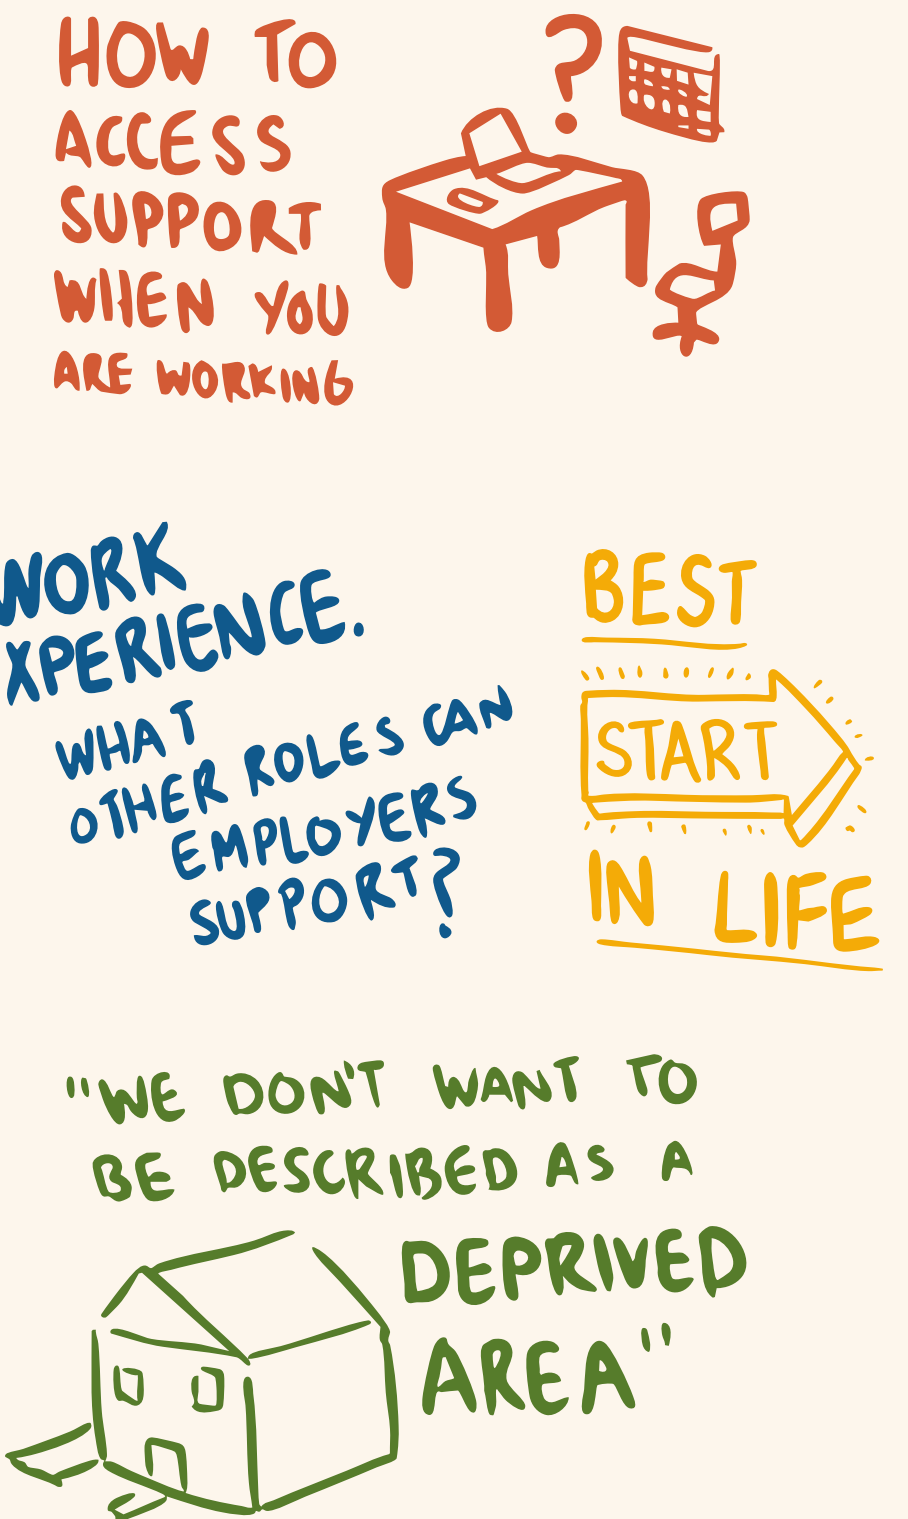 HOW TO
ACCESS
SUPPORT
WHEN YOU
ARE WORKING
?
WORK
XPERIENCE.
WHAT
OTHER ROLES CAN
EMPLOYERS
SUPPORT?
BEST
START
IN LIFE
"WE DON'T WANT TO
BE DESCRIBED AS A
DEPRIVED
AREA"